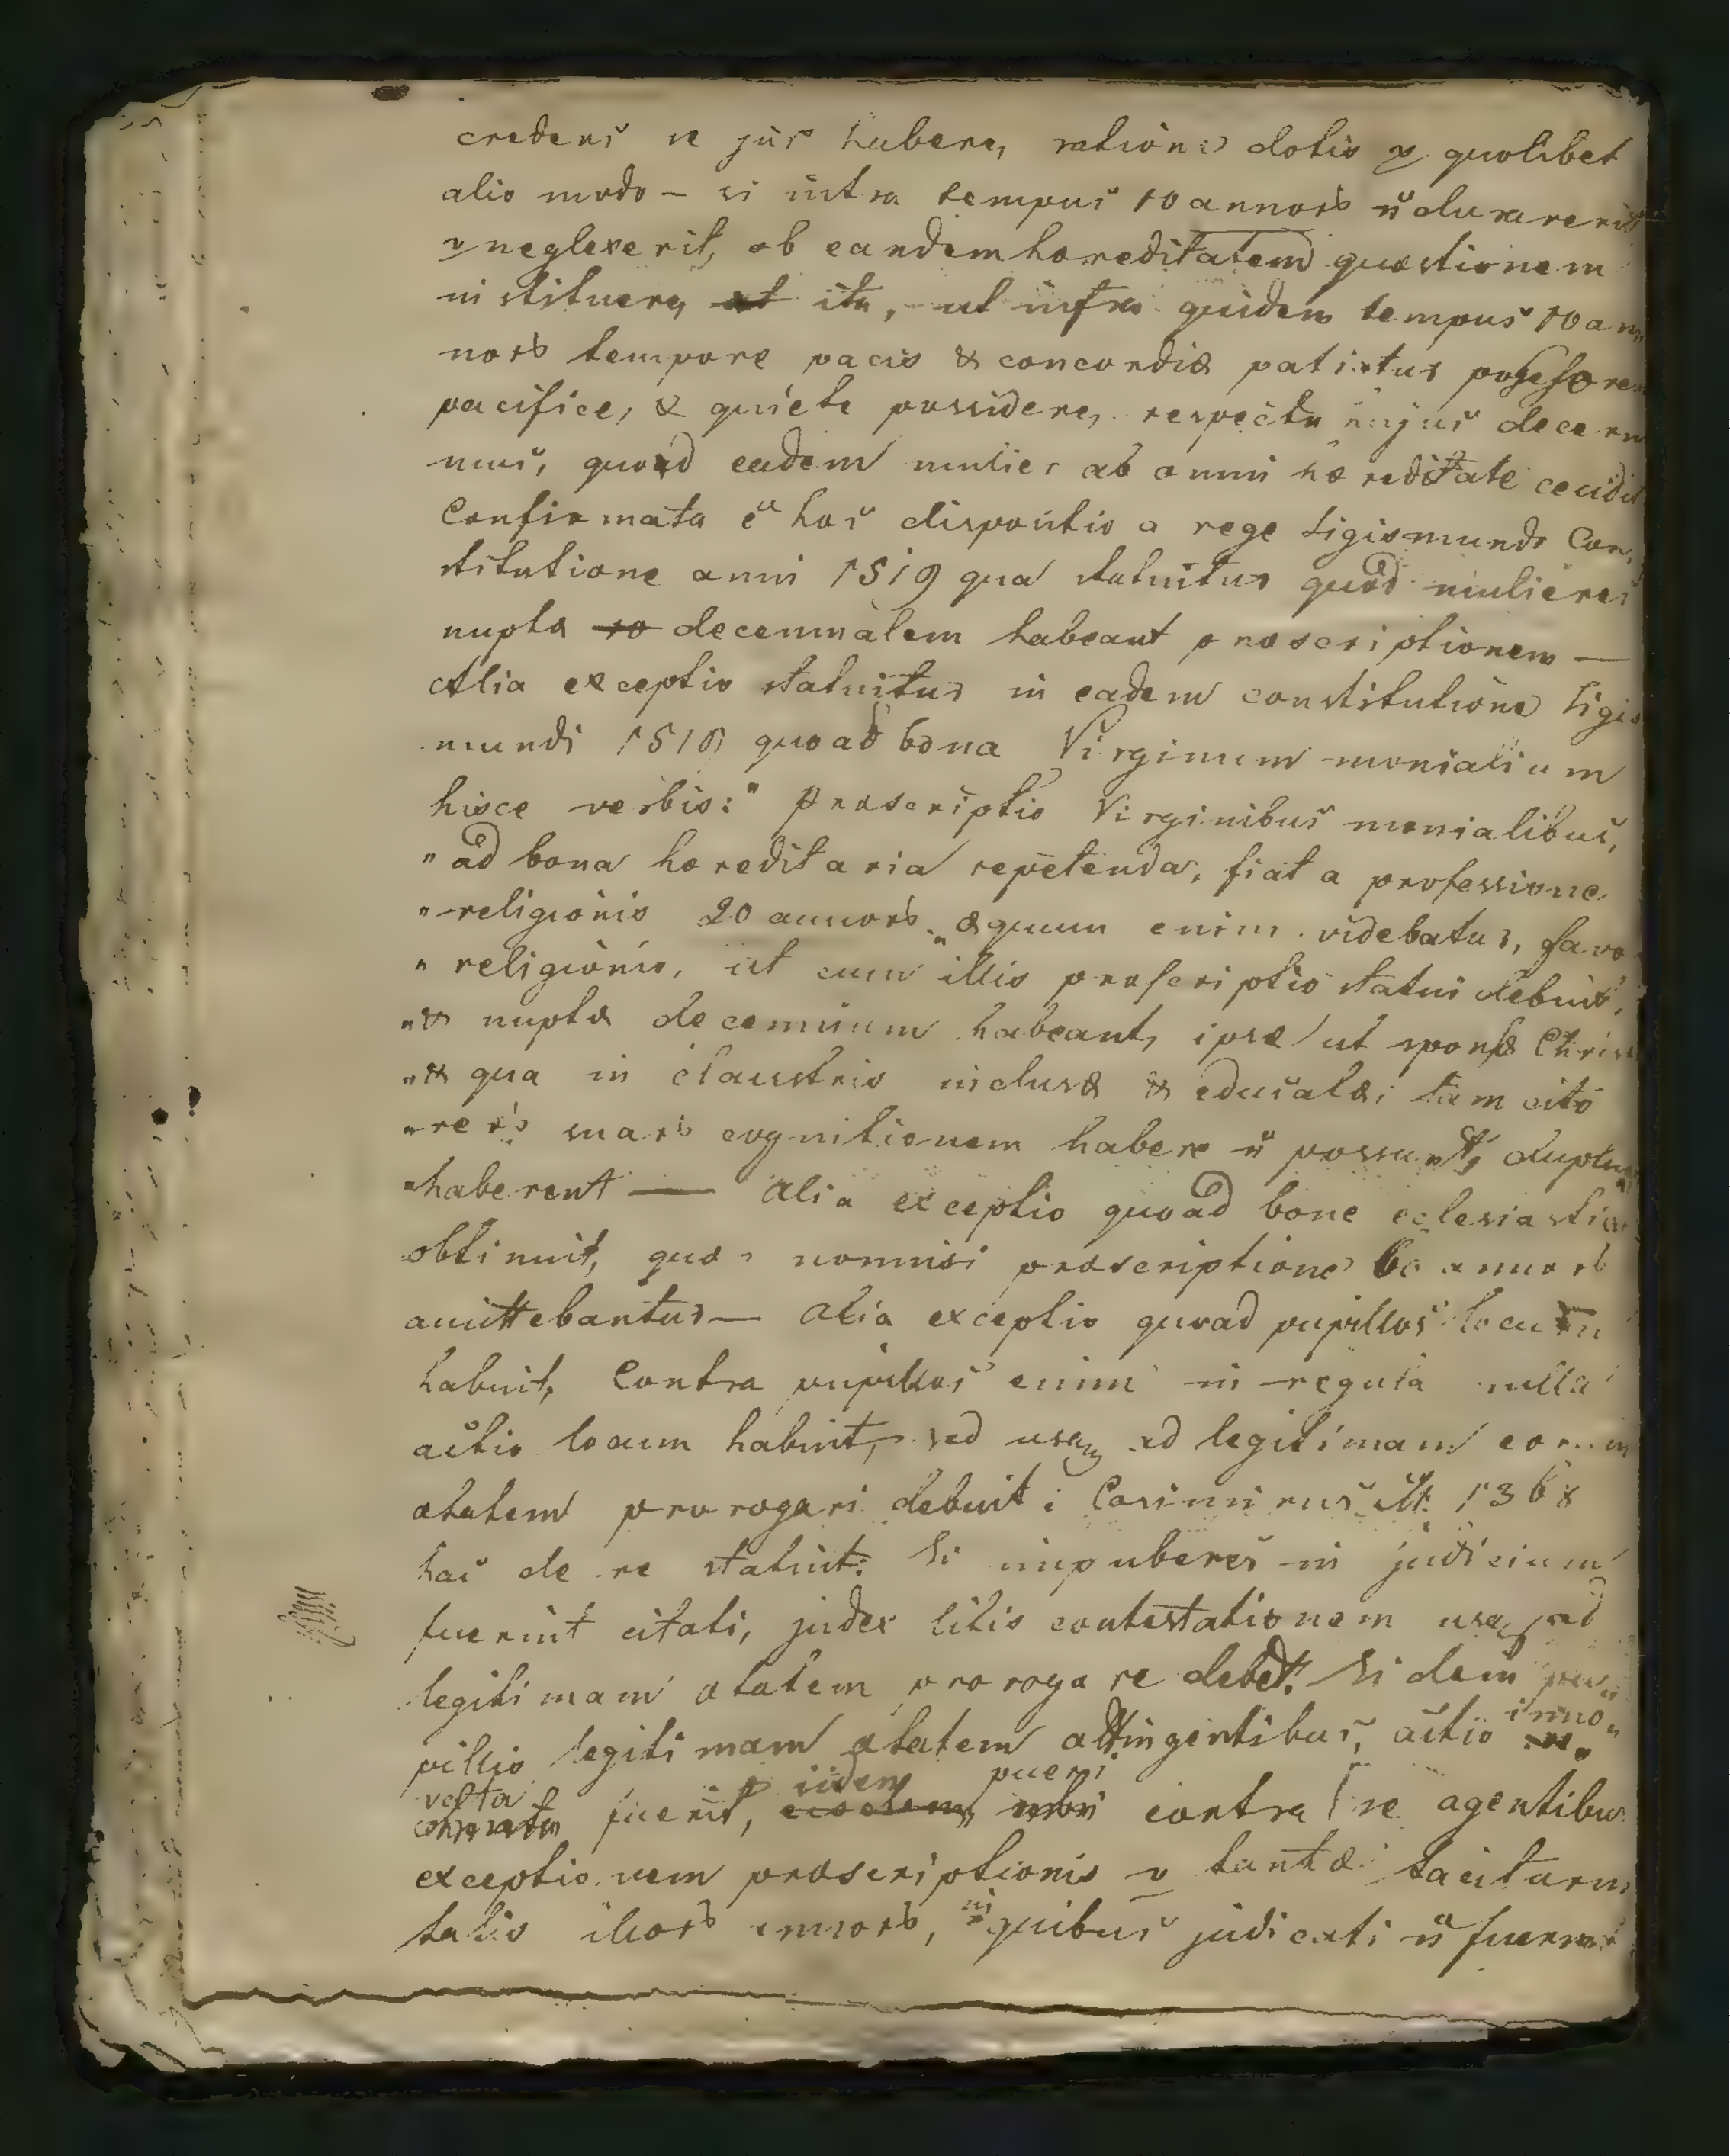 credens se jus habere, ratione dotis v quolibet
alio modo – si intra tempus 10 annorb n̄ duxerit
v neglexerit, ob eandem hæreditatem quæstionem
instituere, at ita, – ut infra quidem tempus 10 an,
norb tempore pacis & concordiæ patiatur possessorem
pacifice, & quiete possidere, respectu cujus decerni
mus, quod eadem mulier ab omni hæreditate cecidit
Confirmata ē hæc dispositio a rege Sigismundo Con,
stitutione anni 1519 qua statuitur quod mulieres
nuptæ 10 decennalem habeant præscriptionem —
Alia exceptio statuitur in eadem constitutione Sigis
mundi 1519 quoad bona Virginum monialium
hisce verbis: " Præscriptio Virginibus monialibus,
" ad bona hæreditaria repetenda, fiat a professione
" religionis 20 annorb „ æquum enim videbatur, favo
" religionis, ut cum illis præscriptio statui debuit,
" & nuptæ decennium habeant, ipsæ ut sponsæ Christi
" & qua in claustris inclusæ & educatæ, tam cito
" rerb suarb cognitionem habere n̄ possunt, duplum
" haberent — Alia exceptio quoad bona eclesiastica
obtinuit, quæ nonnisi præscriptione annorb
amittebantur — Alia exceptio quoad pupillos locum
habuit, Contra pupillos enim in regula nulla
actio locum habuit, sed usq ad legitimam eorum
ætatem prorogari debuit; Casimirus M. 1368
hac de re statuit: Si impuberes in judicium
fuerint citati, judex litis contestationem usq ad
legitimam ætatem prorogare debet. Si dem pu
pillis legitimam ætatem attingentibus, actio inno„
vata fuerit, iidem pueri contra se agentibus
exceptionem præscriptionis v tantæ taciturni
tatis illorb annorb, in quibus judicati n̄ fuerint